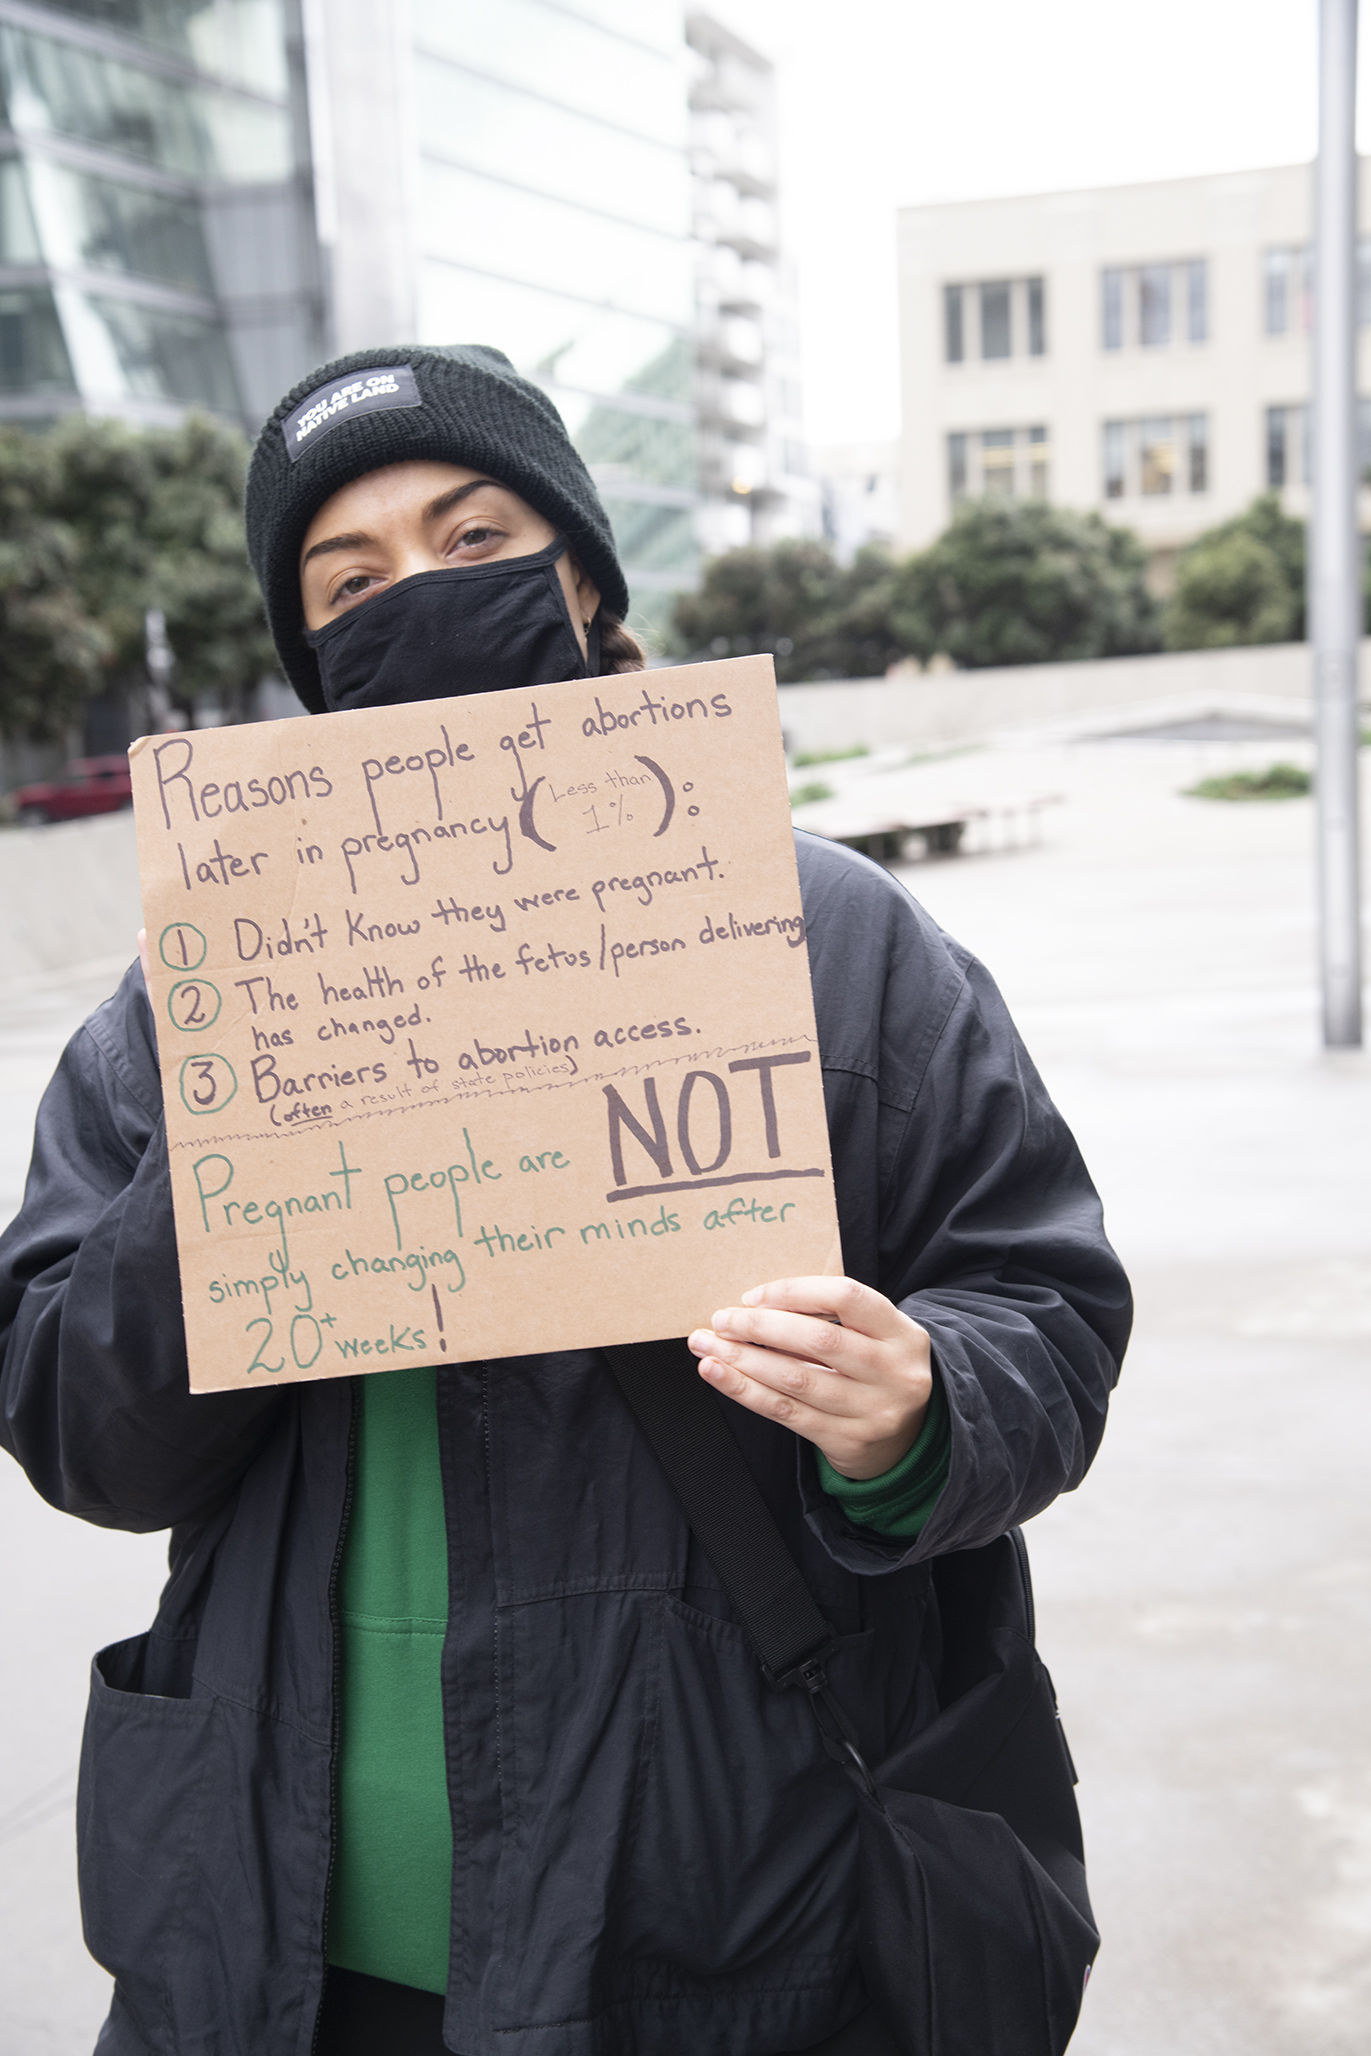 YOU ARE ON
NATIVE LAND
Reasons people get abortions
later in pregnancy (Less than
1%):
1 Didn't know they were pregnant.
2 The health of the fetus/person delivering
has changed.
3 Barriers to abortion access.
(often a result of state policies)
Pregnant people are NOT
simply changing their minds after
20+ weeks!